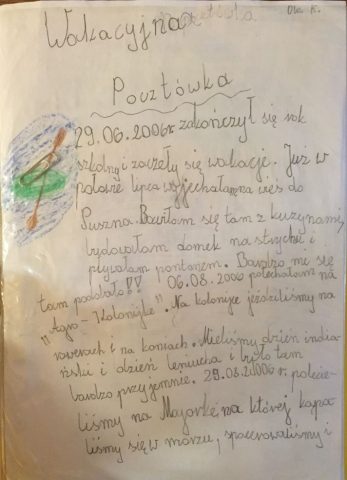 Ola K.
Wakacyjna
Pocztówka
29.06.2006r zakończył się rok
szkolny i zaczęły się wakacje. Już w
połowie lipca wyjechałam na wieś do
Puszna. Bawiłam się tam z kuzynami,
budowałam domek na strychu i
pływałam pontonem. Bardzo mi się
tam podobało!! 06.08.2006 pojechałam na
"Agro-Kolonijke". Na kolonijce jeździliśmy na
rowerach i na koniach. Mieliśmy dzień india-
ński i dzień leniucha i było tam
bardzo przyjemnie. 29.08.2006r. polecie-
liśmy na Majorkę na której kąpa-
liśmy się w morzu, spacerowaliśmy i